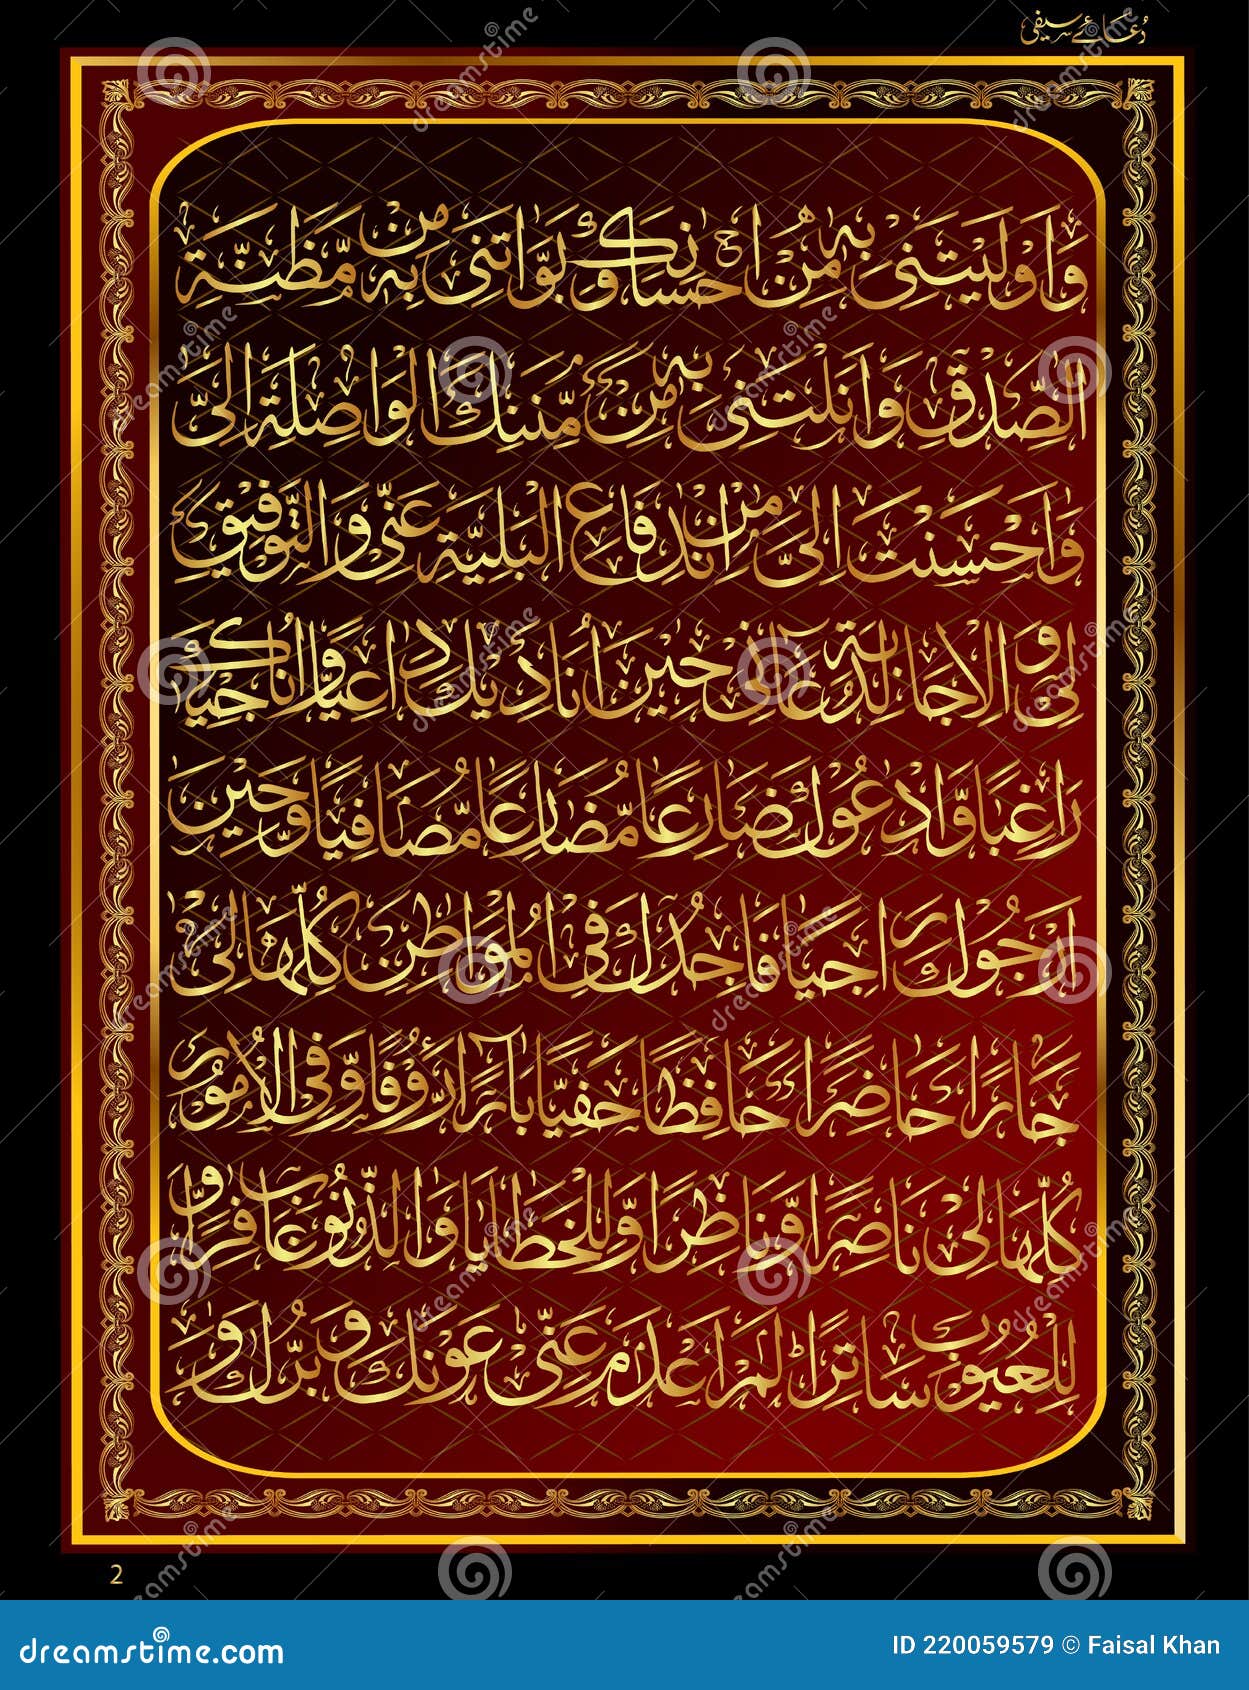 دُعَائے سیفی
وَاَوْلَیْتَنِیْ بِهٖ مِنْ اِحْسَانِكَ وَبَوَّاْتَنِیْ بِهٖ مِنْ مَّظِنَّةِ
الصِّدْقِ وَاَنَلْتَنِیْ بِهٖ مِنْ مِّنَنِكَ الْوَاصِلَةِ اِلَیَّ
وَاَحْسَنْتَ اِلَیَّ مِنْ اِنْدِفَاعِ الْبَلِیَّةِ عَنِّیْ وَالتَّوْفِیْقِ
لِیْ وَالْاِجَابَةِ لِدُعَآئِیْ حِیْنَ اُنَادِیْكَ دَاعِیًا وَّاُنَاجِیْكَ
رَاغِبًا وَّاَدْعُوْكَ ضَارِعًا مُّضَارِعًا مُّصَافِیًا وَّحِیْنَ
اَرْجُوْكَ رَاجِیًا فَاَجِدُكَ فِی الْمَوَاطِنِ كُلِّهَا لِیْ
جَارًا حَاضِرًا حَافِظًا حَفِیًّا بَآرًّا رَءُوْفًا وَّفِی الْاُمُوْرِ
كُلِّهَا لِیْ نَاصِرًا وَّنَاظِرًا وَّلِلْخَطَایَا وَالذُّنُوْبِ غَافِرًا وَّ
لِلْعُیُوْبِ سَاتِرًا لَمْ اَعْدَمْ عَنِّیْ عَوْنَكَ وَبِرَّكَ وَ
2
dreamstime.com
ID 220059579 © Faisal Khan